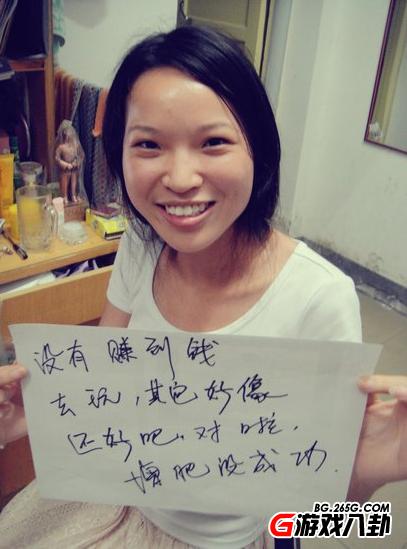 没有赚到钱
去玩，其它好像
还好吧。对啦，
增肥没成功.
BG.265G.COM
G游戏八卦